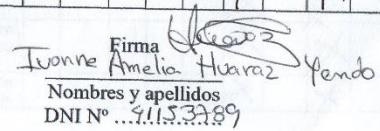 Firma
Ivonne Amelia Huaraz Yendo
Nombres y apellidos
DNI Nº 41153789